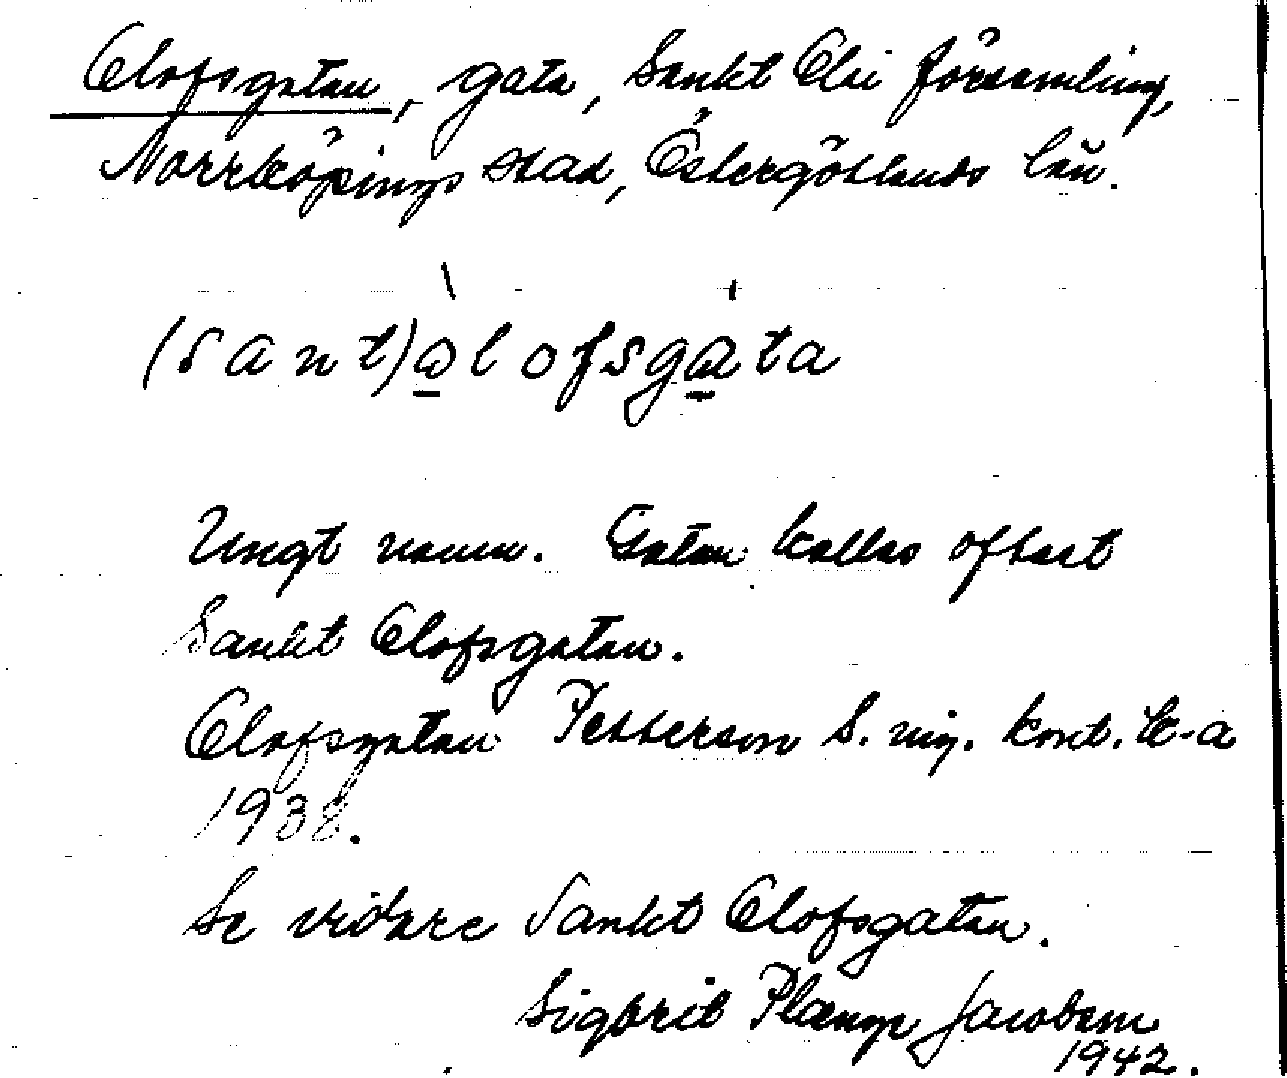 Olofsgatan, gata, Sankt Olai församling,
Norrköpings stad, Östergötlands län.
(sant)olofsgata
Ungt namn. Gatan kallas oftast
Sankt Olofsgatan.
Olofsgatan Pettersson S. ing. kont. k-a
1938.
Se vidare Sankt Olofsgatan.
Sigbrit Plænge Jacobson
1942.